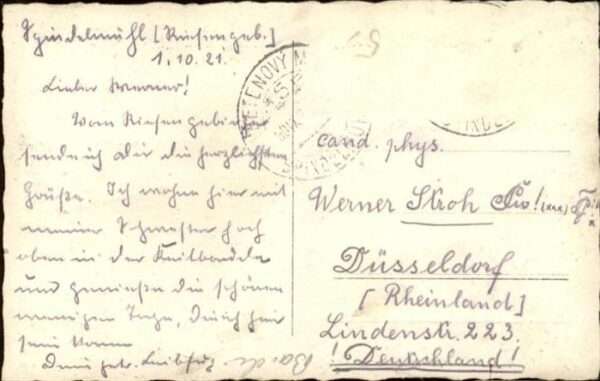 Spindelmühl [Riesengeb.]
1.10.21.
Lieber Werner!
Vom Riesengebirge
sende ich Dir die herzlichsten
Grüße. Ich wohne hier mit
meiner Schwester hoch
oben in der
und genieße die schönen
wenigen Tage, die ich hier
sein kann
Dein
cand. phys.
Werner Stroh
Düsseldorf
[Rheinland]
Lindenstr. 223.
! Deutschland!